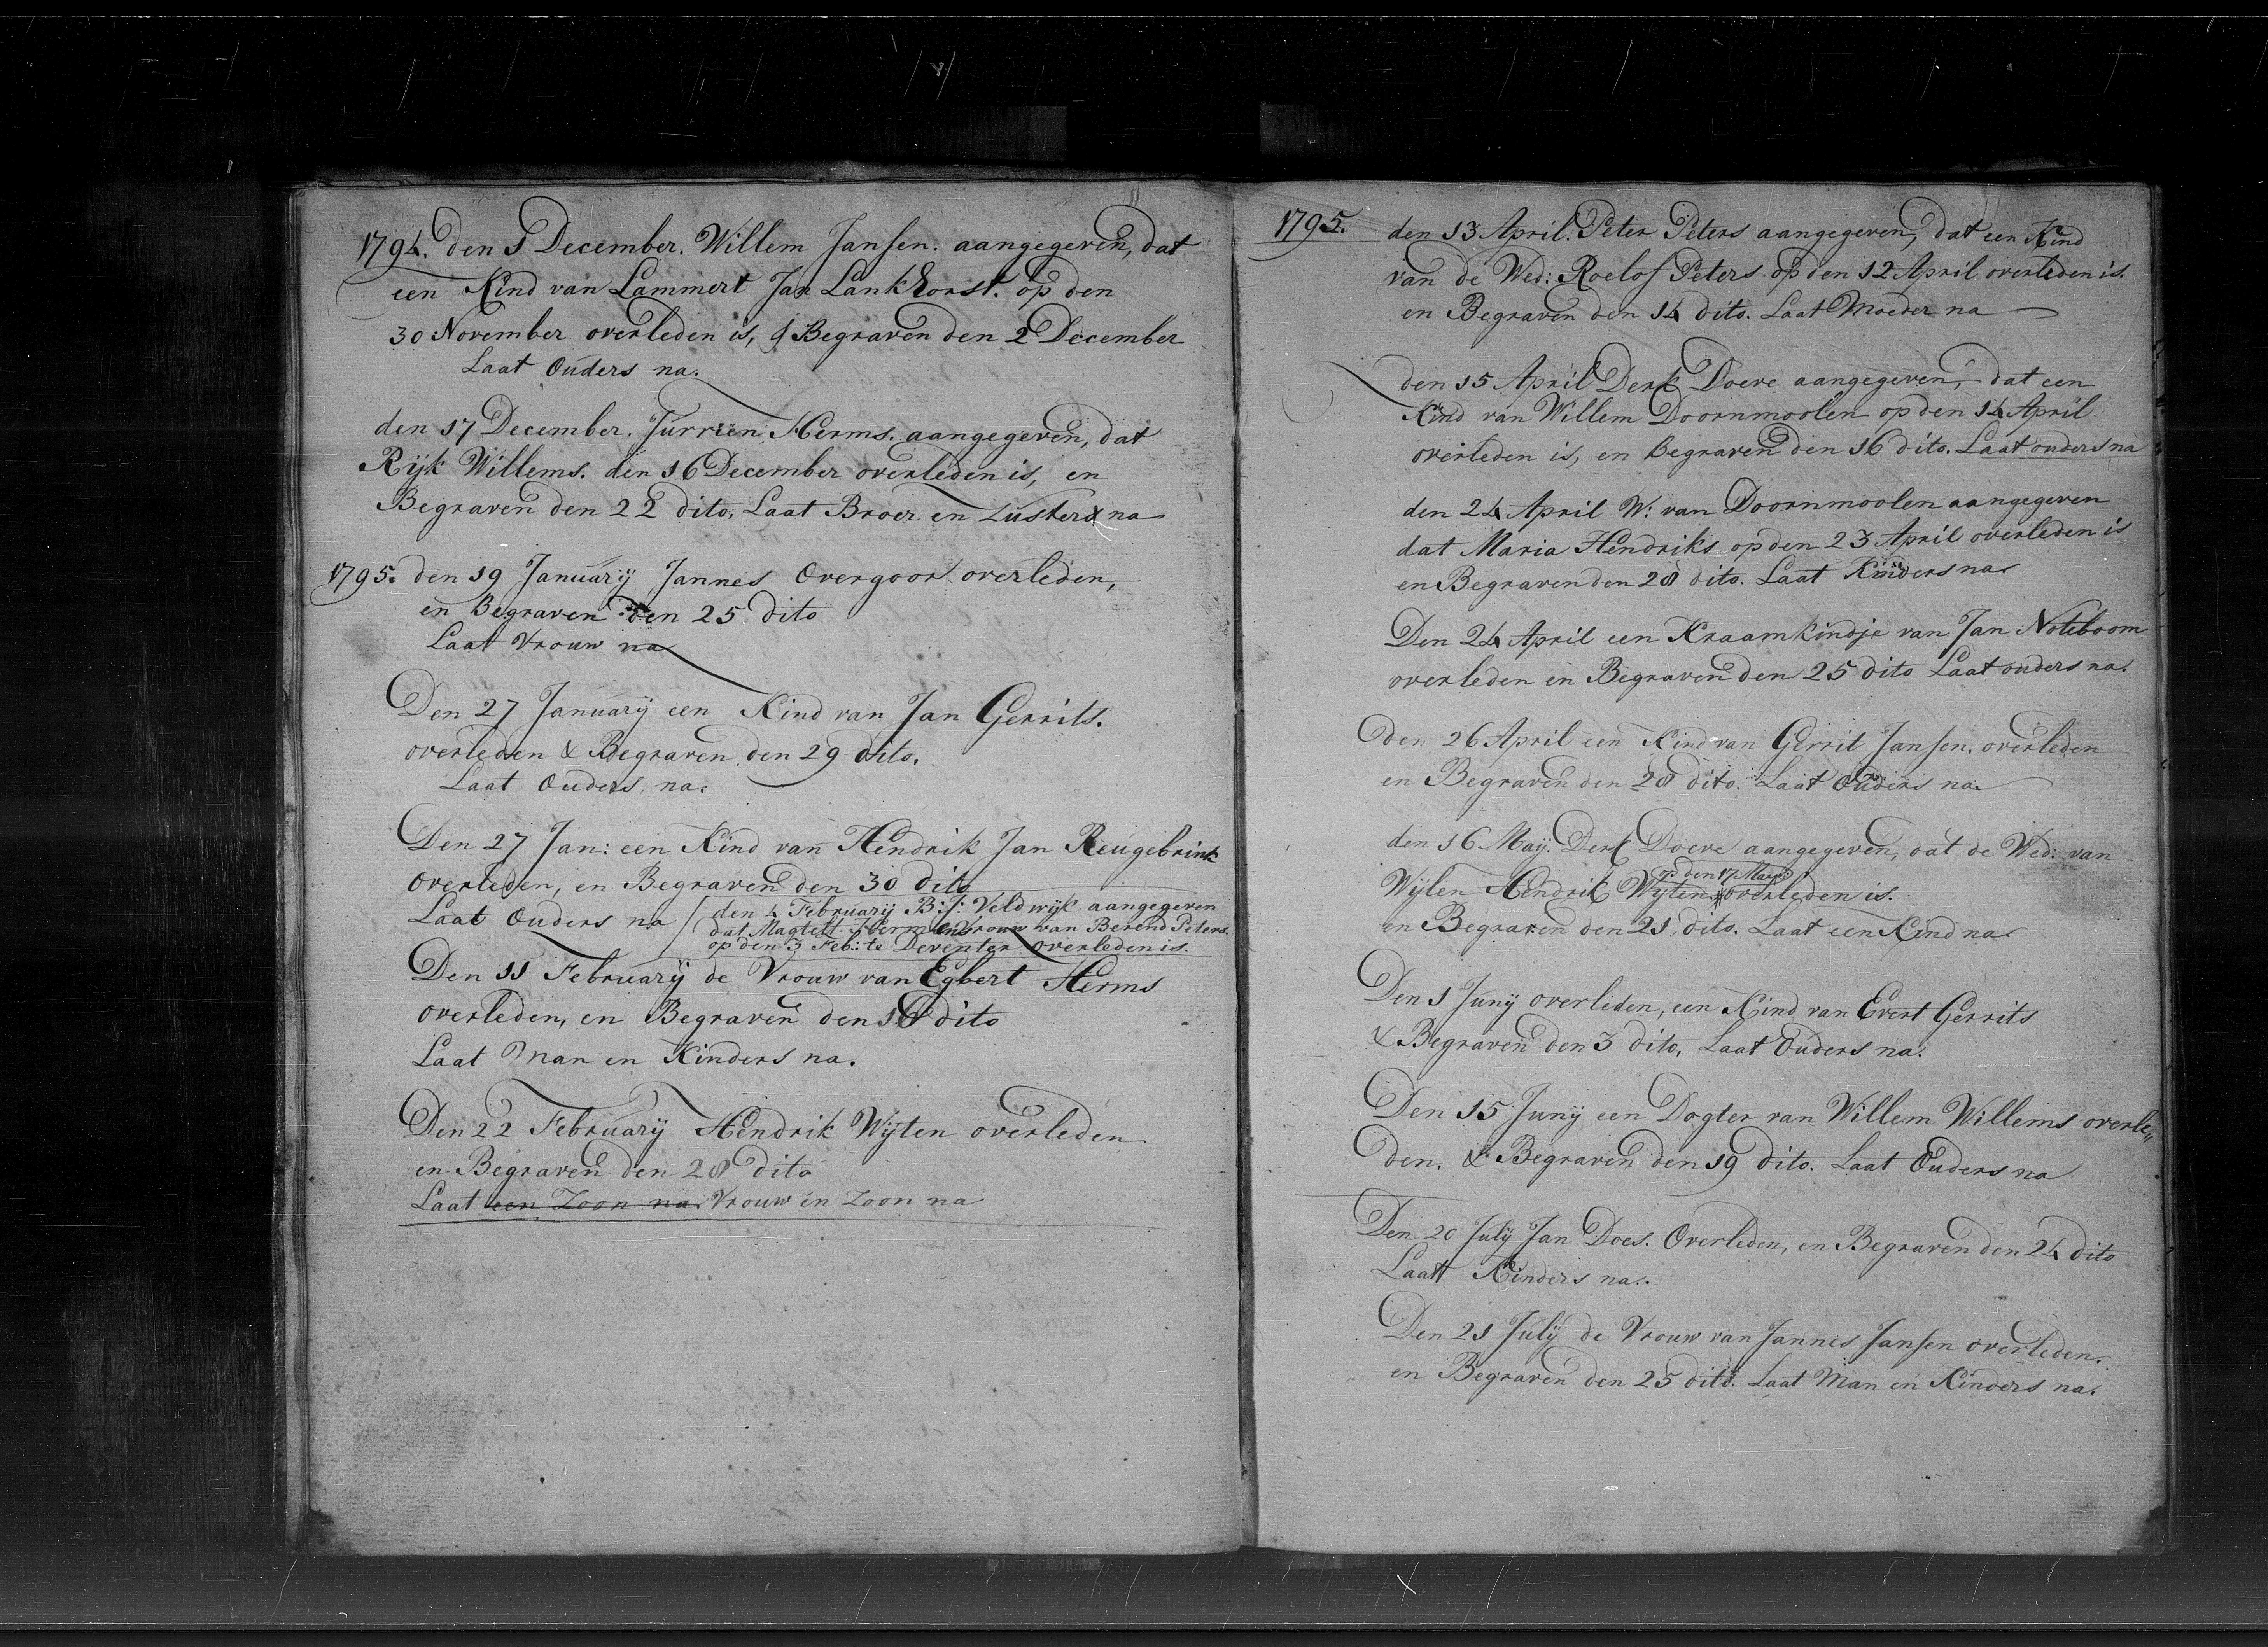 1794. den 1 December. Willem Jansen. aangegeven, dat
een Kind van Lammert Jan Lankhorst. op den
30 November overleden is, & Begraven den 2 December
Laat Ouders na.
den 17 December. Jurrien Herms. aangegeven, dat
Rijk Willems. den 16 December overleden is, en
Begraven den 22 dito. Laat Broer en Zusters na
1795. den 19 Januarij Jannes Overgoor overleden,
en Begraven den 25 dito
Laat Vrouw na
Den 27 Januarij een Kind van Jan Gerrits.
overleden & Begraven den 29 dito.
Laat Ouders na.
Den 27 Jan: een Kind van Hendrik Jan Reugebrink
Overleden, en Begraven den 30 dito
Laat Ouders na
den 4 Februarij B: J: Veldwijk aangegeven
dat Magtelt Hermsen vrouw van Berend Peters.
op den 3 Feb: te Deventer overleden is.
Den 11 Februarij de Vrouw van Egbert Herms
overleden, en Begraven den 18 dito
Laat Man en Kinders na.
Den 22 Februarij Hendrik Wijten overleden
en Begraven den 28 dito
Laat een Zoon na. Vrouw en Zoon na
1795. den 13 April. Peter Peters aangegeven, dat een Kind
van de Wed: Roelof Peters op den 12 April overleden is.
en Begraven den 14 dito. Laat Moeder na
den 15 April Derk Doeve aangegeven, dat een
Kind van Willem Doornmoolen op den 14 April
overleden is, en Begraven den 16 dito. Laat ouders na
den 24 April W: van Doornmoolen aangegeven
dat Maria Hendriks op den 23 April overleden is
en Begraven den 28 dito. Laat Kinders na
Den 24 April een Kraamkindje van Jan Noteboom
overleden en Begraven den 25 dito Laat ouders na.
Den 26 April een Kind van Gerrit Jansen. overleden
en Begraven den 28 dito. Laat Ouders na.
den 16 Maij. Derk Doeve aangegeven, dat de Wed: van
op den 17 Maij
Wijlen Hendrik Wijten overleden is.
en Begraven den 21 dito. Laat een Kind na
Den 1 Junij overleden, een Kind van Evert Gerrits
& Begraven den 3 dito. Laat Ouders na.
Den 15 Junij een Dogter van Willem Willems overle„
den. & Begraven den 19 dito. Laat Ouders na
Den 20 Julij Jan Does. Overleden, en Begraven den 24 dito
Laat Kinders na.
Den 21 Julij de Vrouw van Jannes Jansen overleden.
en Begraven den 25 dito. Laat Man en Kinders na.